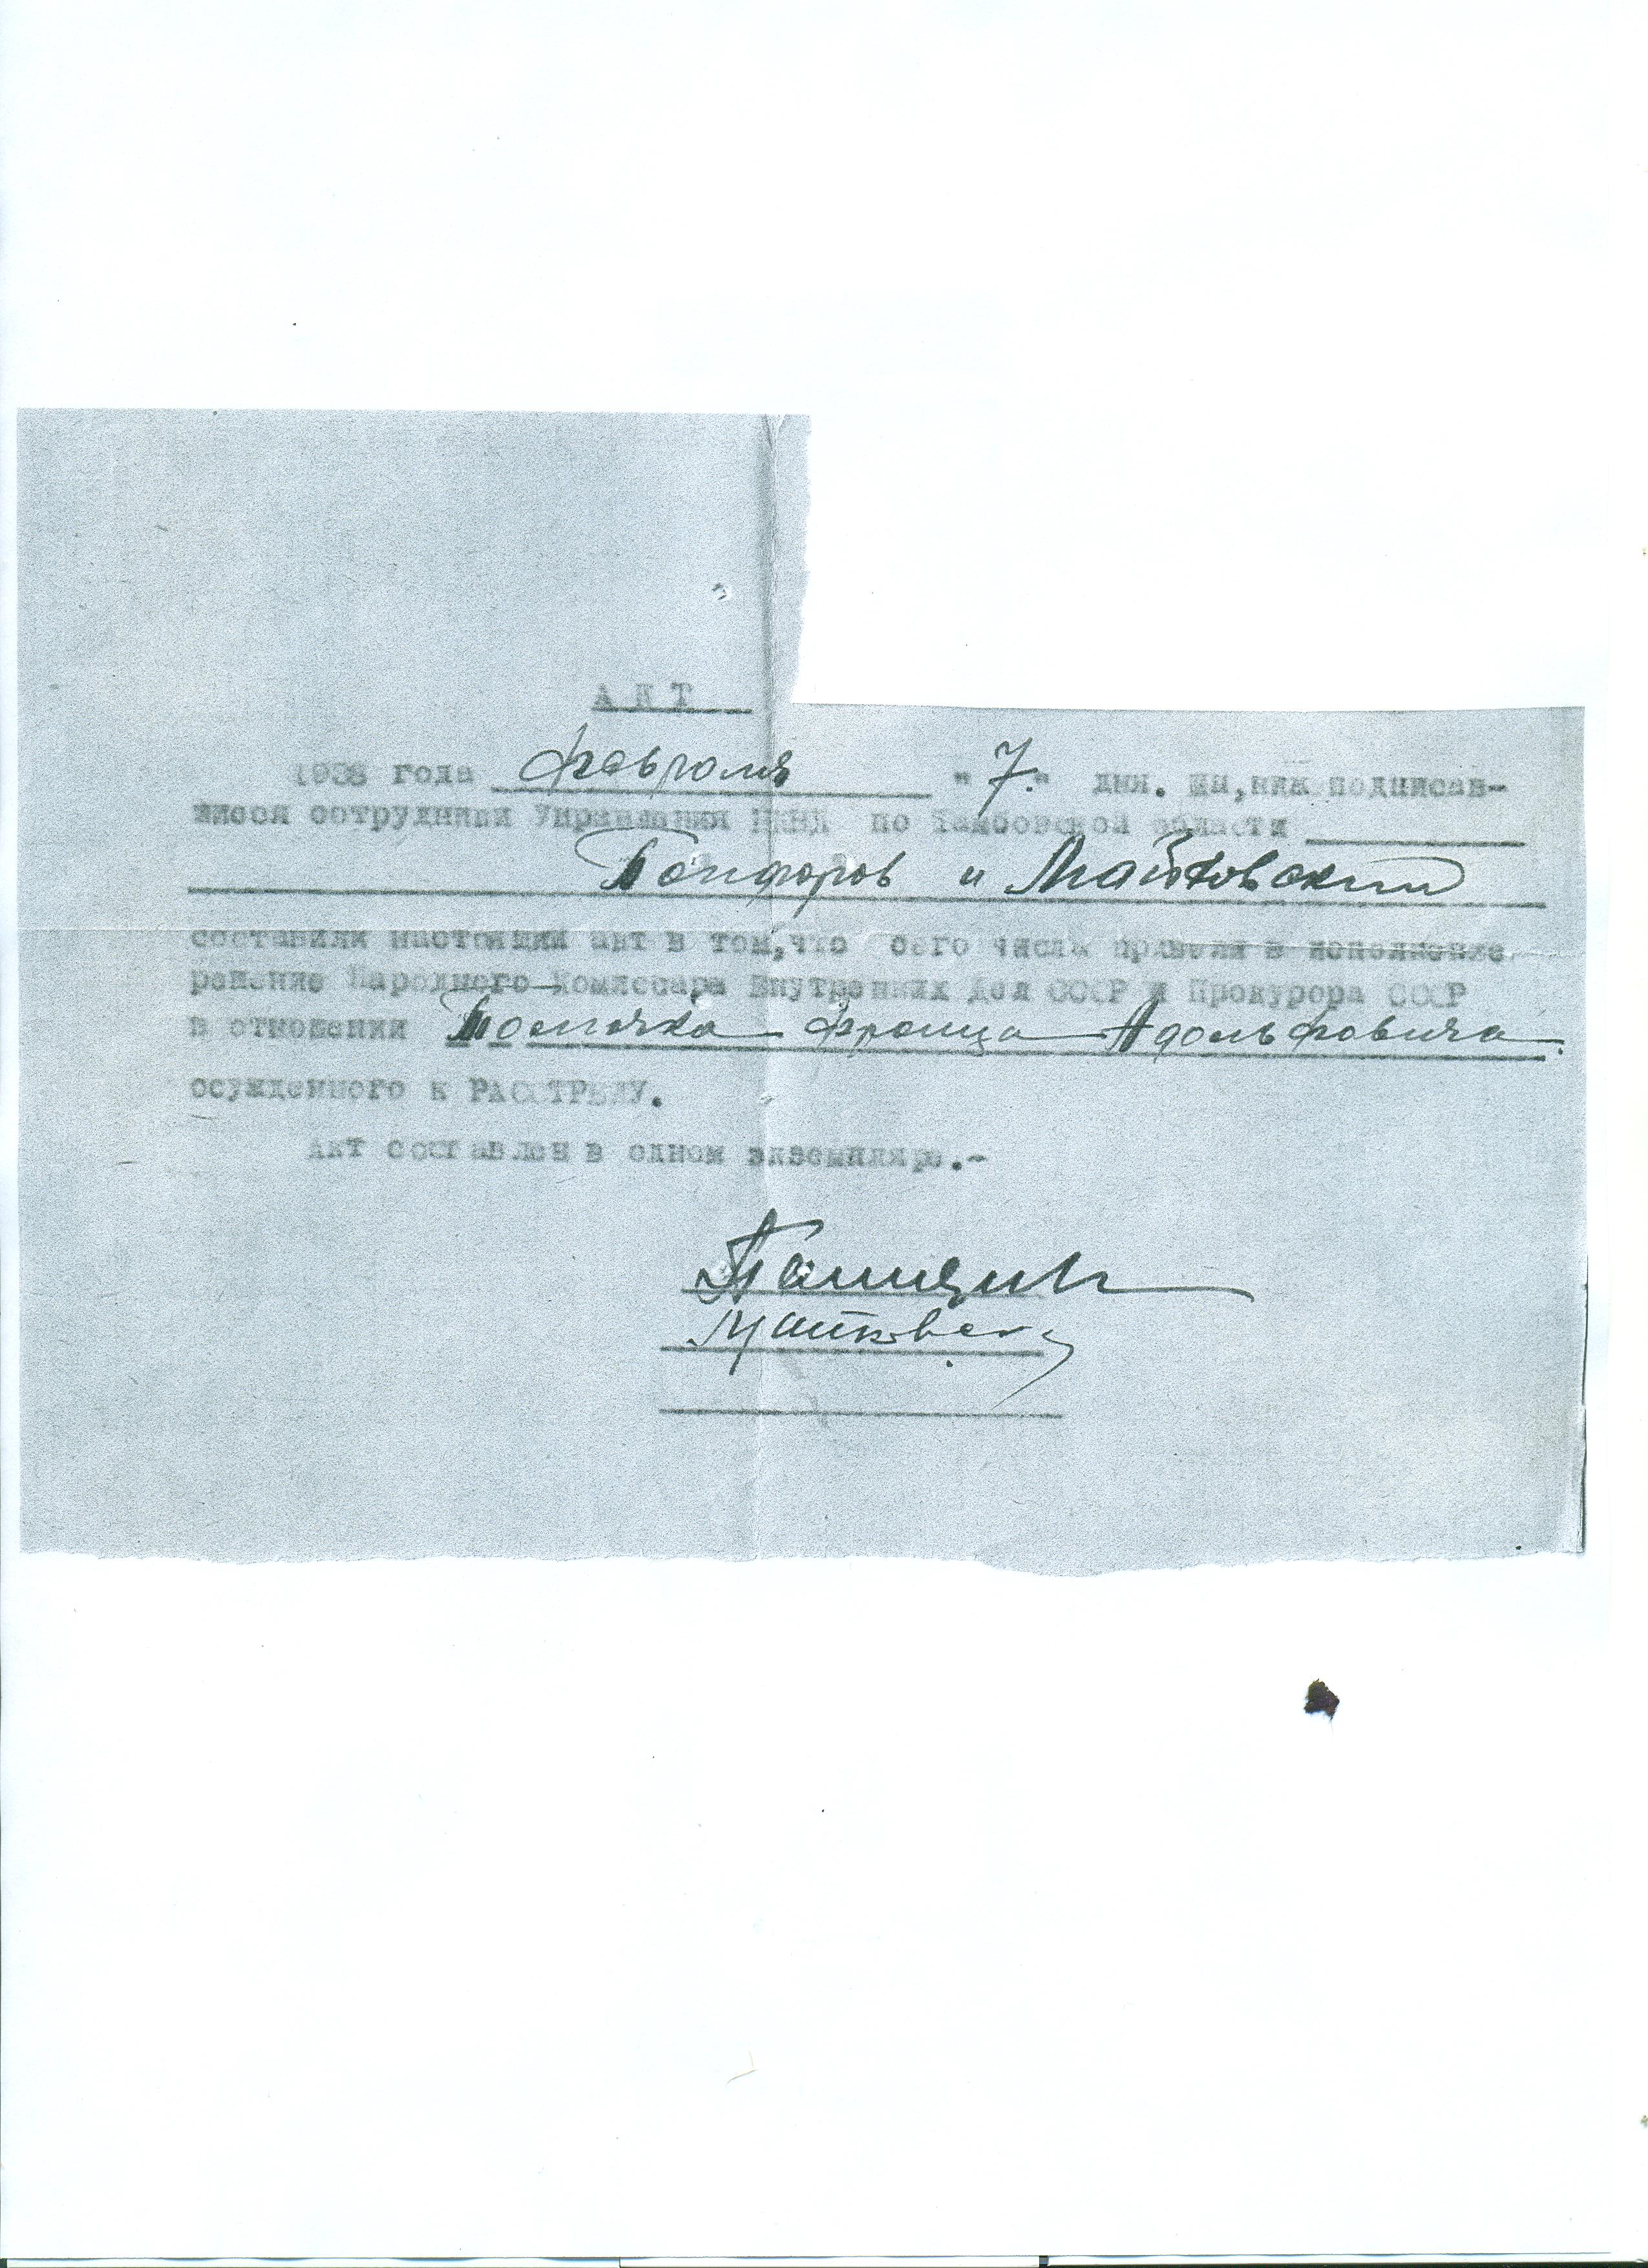 АКТ
1938 года февраля "7" дня. Мы, ниже подписав-
шиеся сотрудники Управления НКВД по Тамбовской области
и Майковский
составили настоящий акт в том, что сего числа привели в исполнение
решение Народного Комиссара Внутренних Дел СССР и Прокурора СССР
в отношении Франца Адольфовича
осужденного к РАССТРЕЛУ.
Акт составлен в одном экземпляре.-